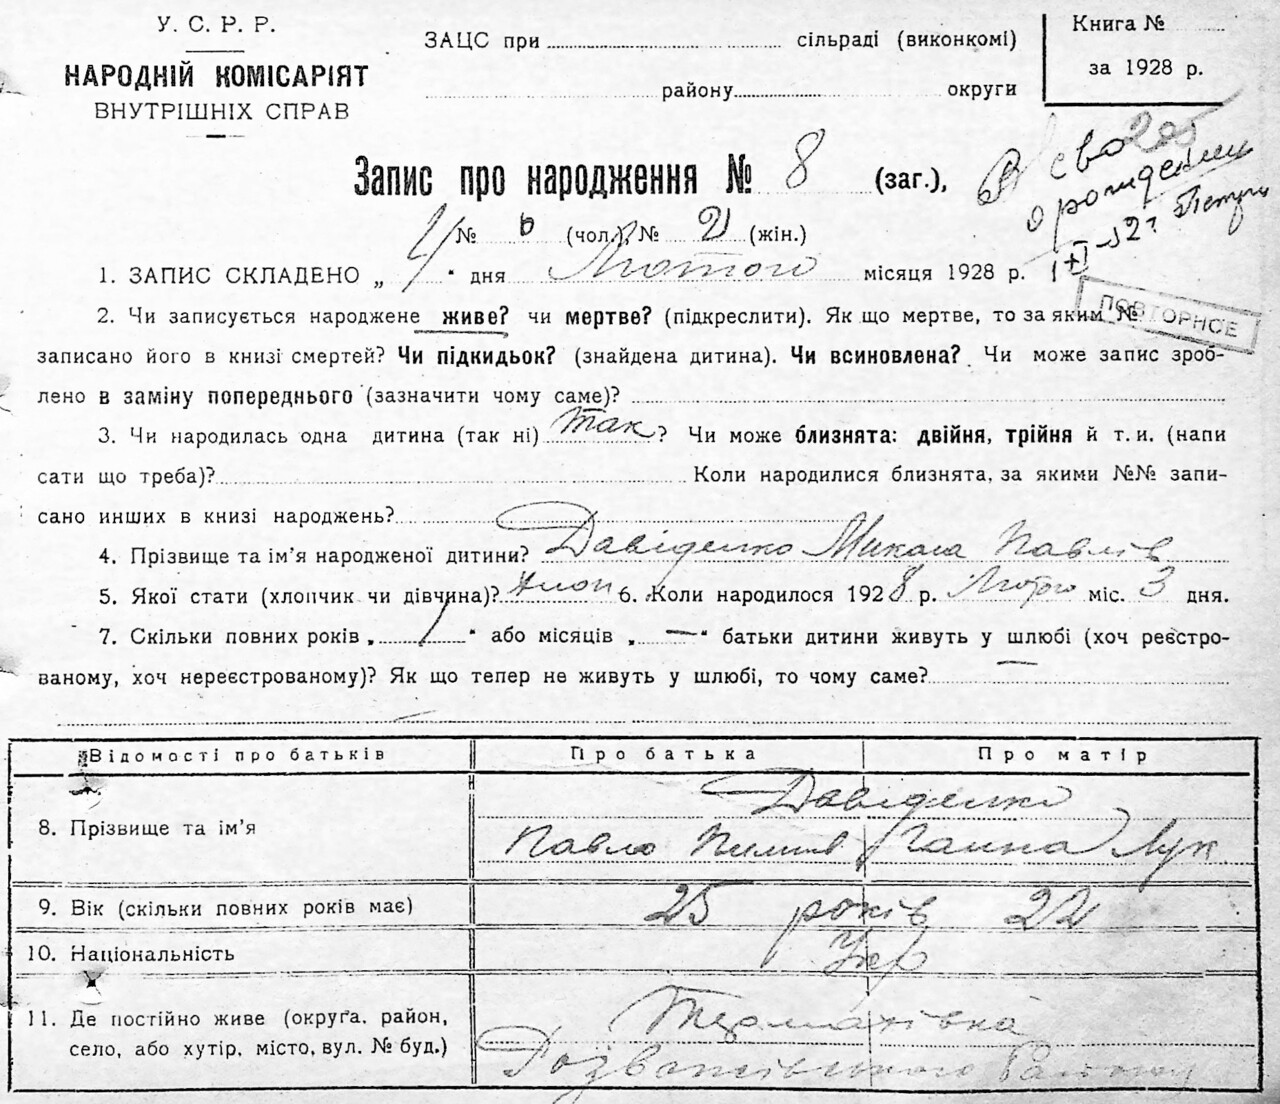 У. С. Р. Р.
НАРОДНІЙ КОМІСАРІЯТ
ВНУТРІШНІХ СПРАВ
ЗАЦС при сільраді (виконкомі)
району округи
Книга №
за 1928 р.
205
Запис про народження № 8 (заг.),
№ 6 (чол.), № 2 (жін.)
1. ЗАПИС СКЛАДЕНО „ 4 " дня Лютого місяця 1928 р.
ПОВТОРНОЕ
2. Чи записується народжене живе? чи мертве? (підкреслити). Як що мертве, то за яким №
записано його в книзі смертей? Чи підкидьок? (знайдена дитина). Чи всиновлена? Чи може запис зроб-
лено в заміну попереднього (зазначити чому саме)?
3. Чи народилась одна дитина (так ні) так? Чи може близнята: двійня, трійня й т. и. (напи
сати що треба)? Коли народилися близнята, за якими №№ запи-
сано инших в книзі народжень?
4. Прізвище та ім'я народженої дитини? Давіденко Микола Павлів
5. Якої статі (хлопчик чи дівчина)? хлоп 6. Коли народилося 1928 р. Лютого міс. 3 дня.
7. Скільки повних років „ 1 " або місяців „ — " батьки дитини живуть у шлюбі (хоч реєстро-
ваному, хоч нереєстрованому)? Як що тепер не живуть у шлюбі, то чому саме? —
Відомості про батьків Про батька Про матір
8. Прізвище та ім'я Давіденко
Павло Пилип Ганна Лук
9. Вік (скільки повних років має) 25 років 22
10. Національність Укр
11. Де постійно живе (округа. район,
село, або хутір, місто, вул. № буд.)
Термахівка
Розважівського Району